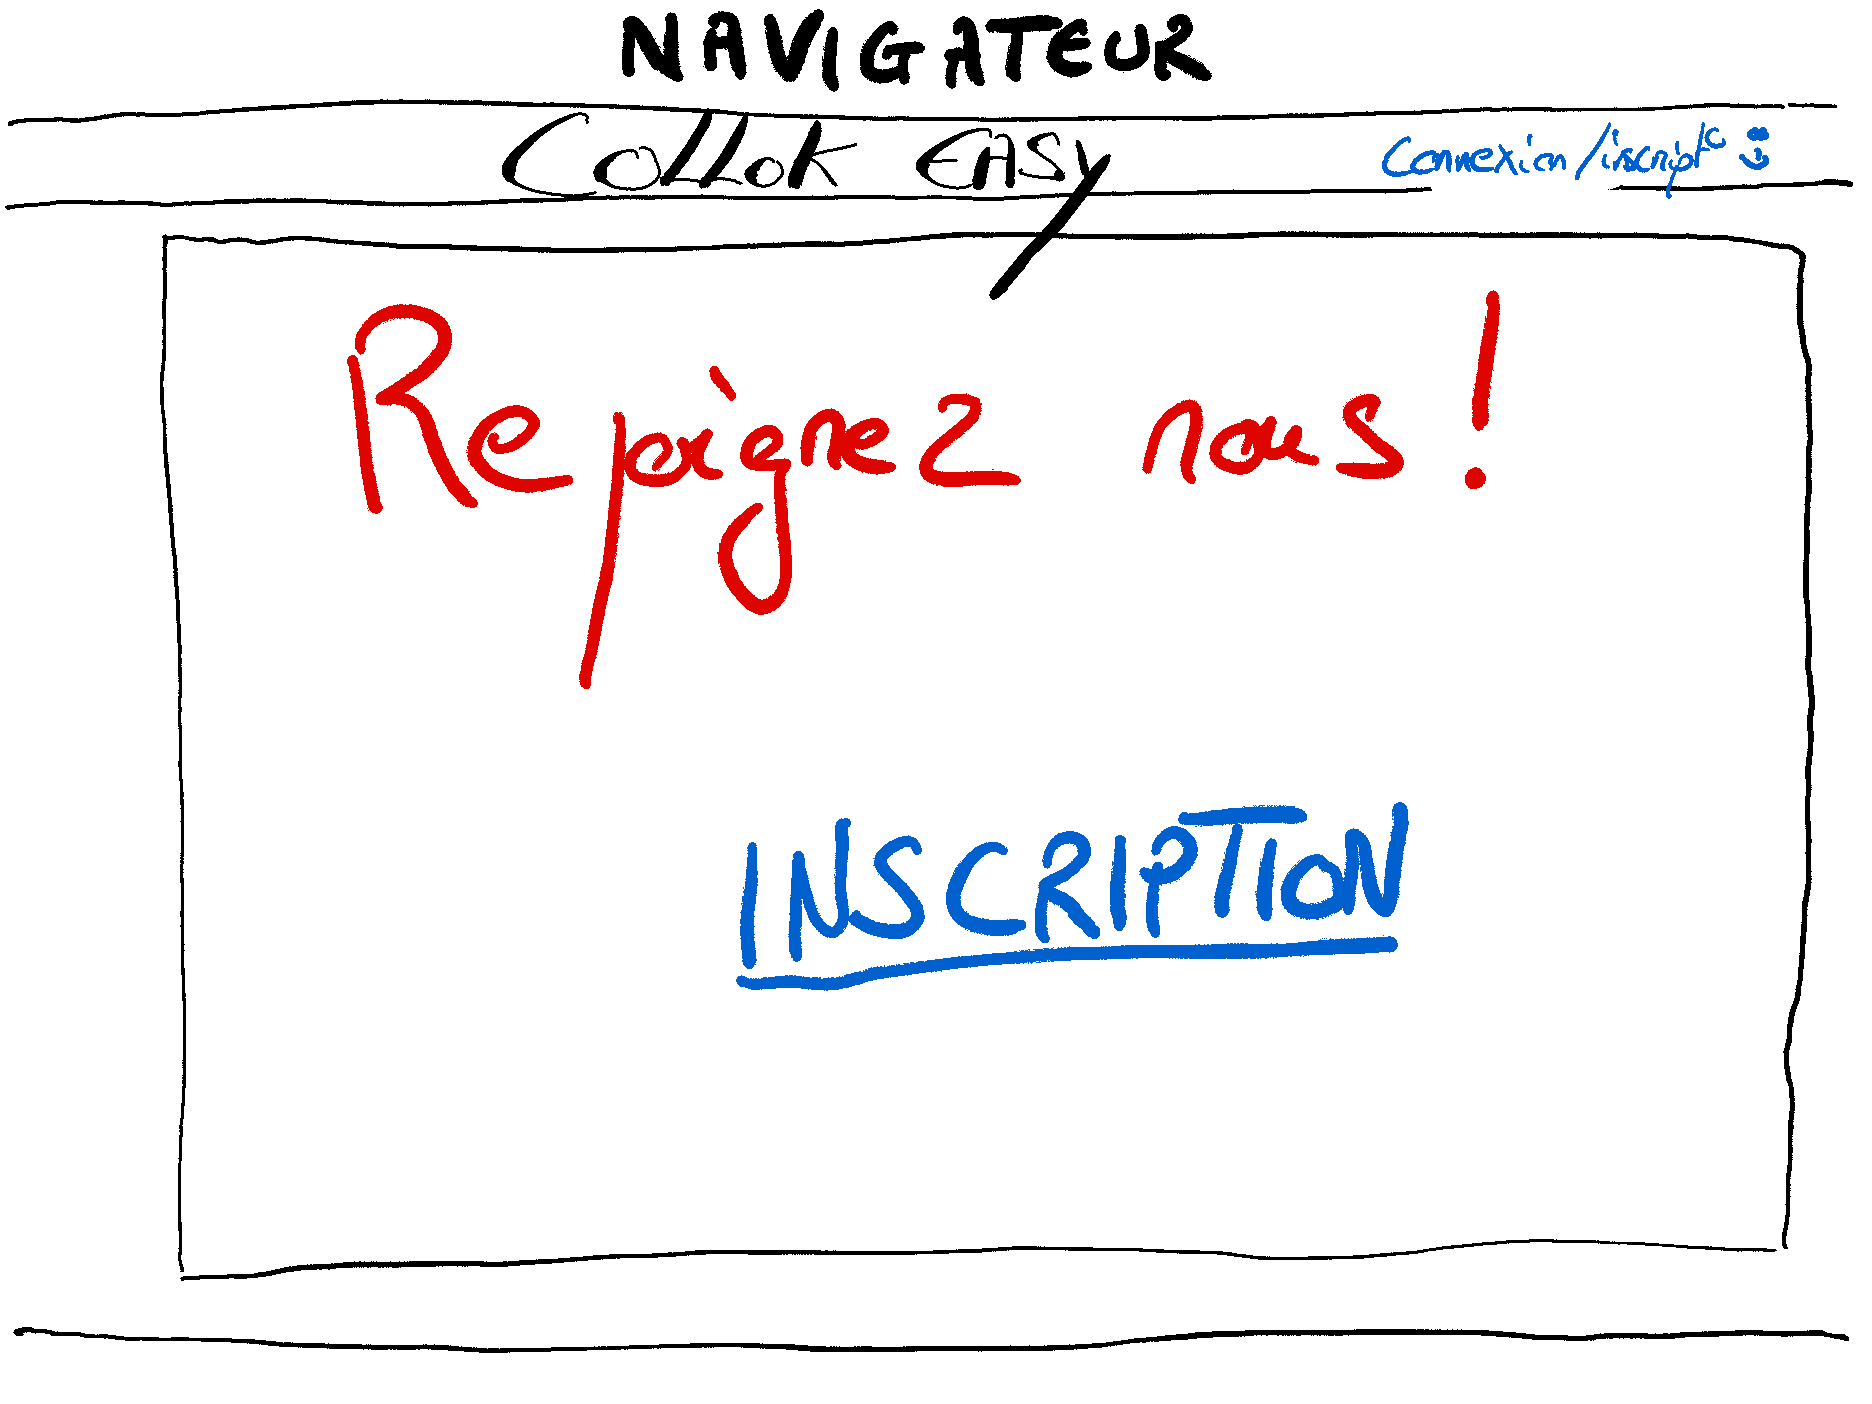 NAVIGATEUR
Collok EASy
Connexion/inscript°
Rejoignez nous !
INSCRIPTION